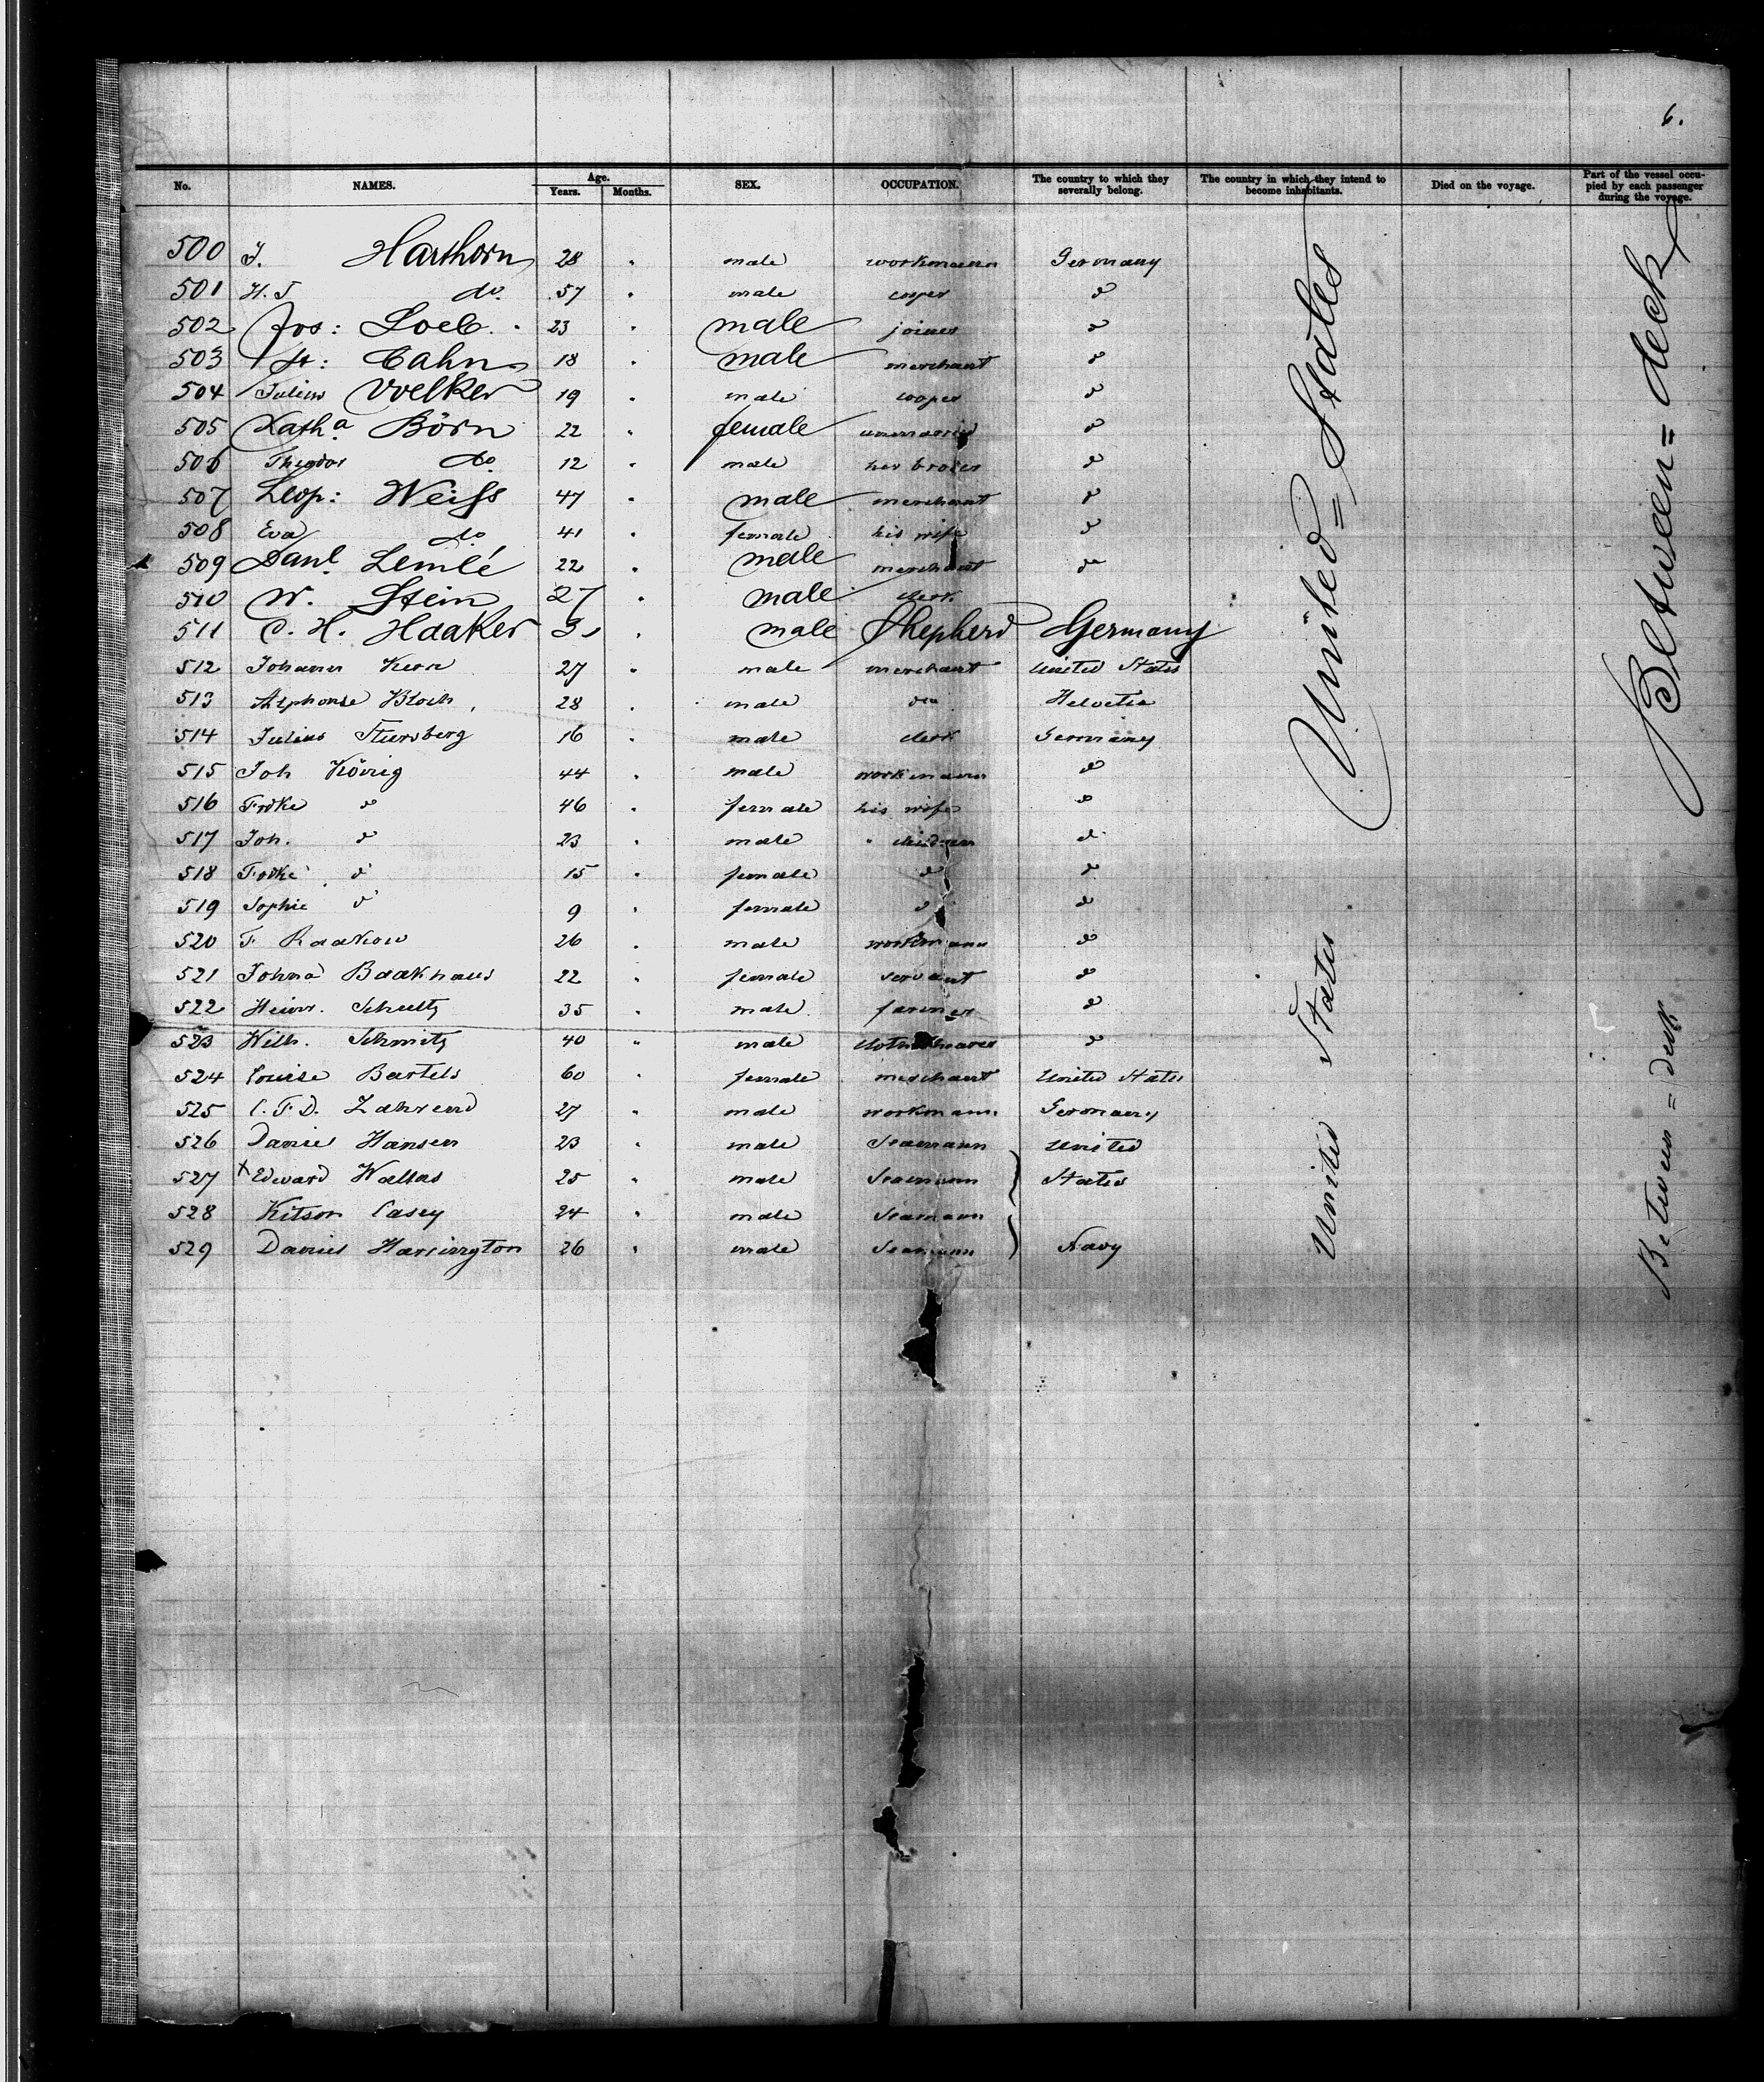 6.
No. NAMES. Age. Years. Months. SEX. OCCUPATION. The country to which they severally belong. The country in which they intend to become inhabitants. Died on the voyage. Part of the vessel occupied by each passenger during the voyage.
500 J. Harthorn 28 " male workmann Germany
501 H. J do. 57 " male cooper do
502 Jos: Loeb. 23 " male joiner do
503 H: Cahn 18 " male merchant do
504 Julius Voelker 19 " male cooper do
505 Katha Börn 22 " female unmarried do
506 Theodor do 12 " male her broter do
507 Leop: Weiss 47 " male merchant do
508 Eva do 41 " female his wife do
509 Danl. Lemlé 22 " male merchant do
510 W. Stein 27 " male clerk
511 C. H. Haaker 31 " male Shepherd Germany
512 Johann Kern 27 " male merchant United States
513 Alphonse Bloch 28 " male do Helvetia
514 Julius Stursberg 16 " male clerk Germany
515 Joh König 44 " male workmann do
516 Fooke do 46 " female his wife do
517 Joh. do 23 " male " children do
518 Fooke do 15 " female do do
519 Sophie do 9 " female do do
520 F Raakow 26 " male workmann do
521 Johna Baakhaus 22 " female servant do
522 Heinr. Schultz 35 " male farmer do
523 Wilh. Schmitz 40 " male do
524 Louise Bartels 60 " female merchant United States
525 C. F. D. Zahrend 27 " male workmann Germany
526 Daniel Hansen 23 " male Seamann United
527 x Edward Wallas 25 " male Seamann States
528 Kitson Casey 24 " male Seamann
529 Daniel Harrington 26 " male Seamann Navy
United = States
United States
Between = deck
Between = deck